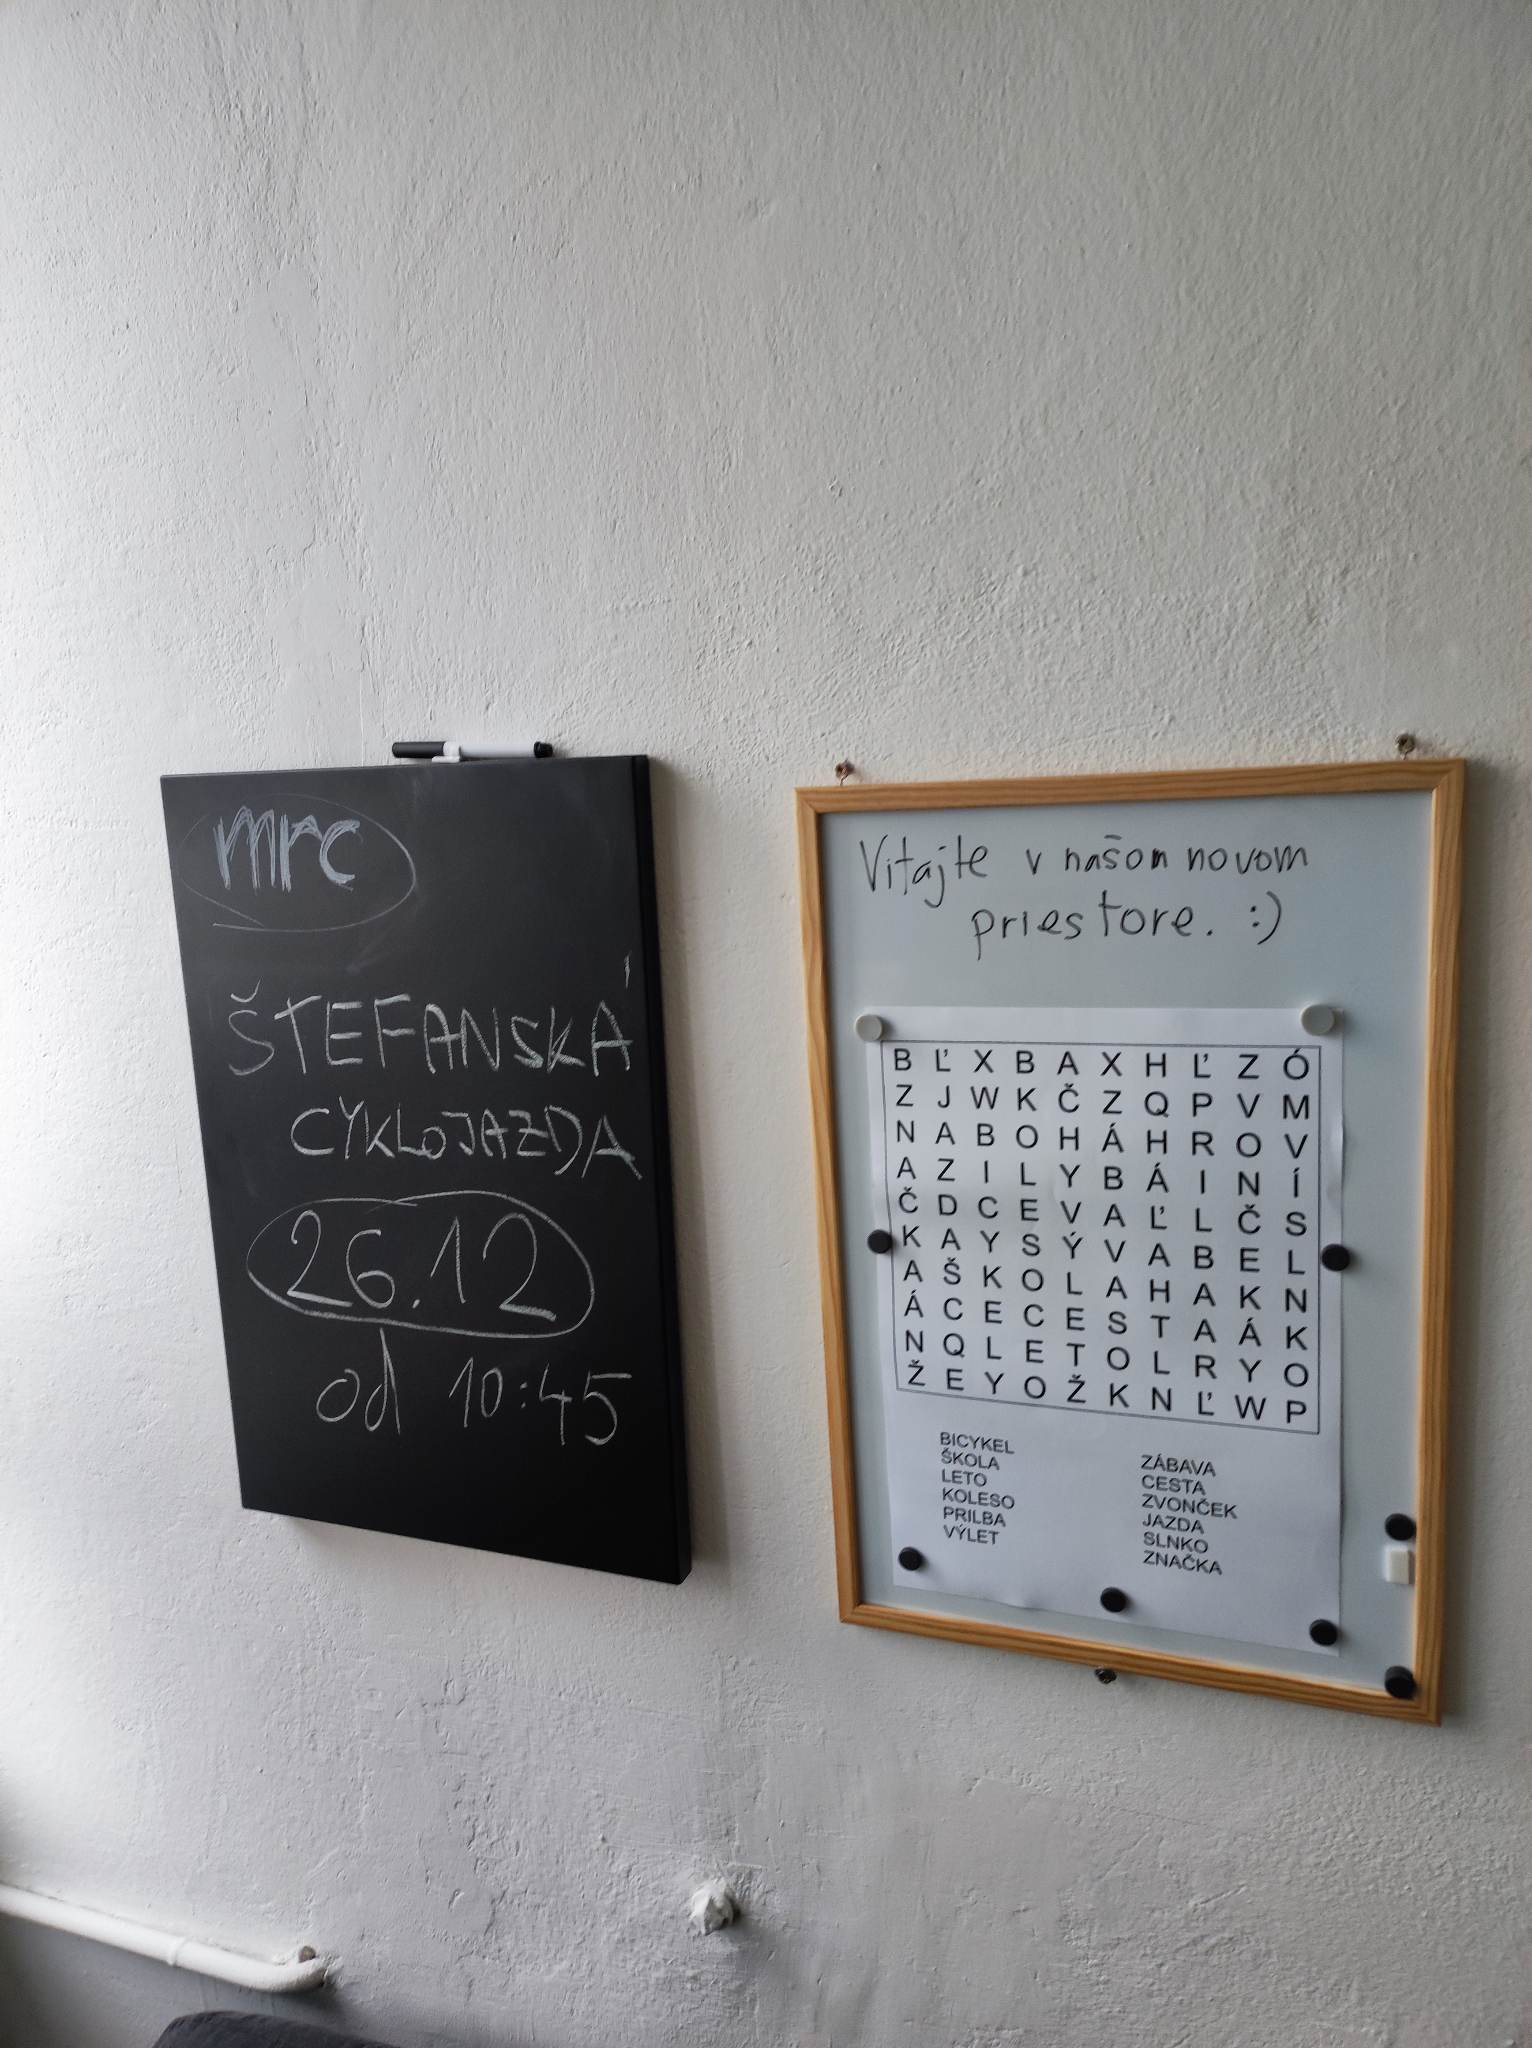 mrc
ŠTEFANSKÁ
CYKLOJAZDA
26.12
od 10:45
Vitajte v našom novom
priestore. :)
B Ľ X B A X H Ľ Z Ó
Z J W K Č Z Q P V M
N A B O H Á H R O V
A Z I L Y B Á I N Í
Č D C E V A Ľ L Č S
K A Y S Ý V A B E L
A Š K O L A H A K N
Á C E C E S T A Á K
N Q L E T O L R Y O
Ž E Y O Ž K N Ľ W P
BICYKEL
ŠKOLA
LETO
KOLESO
PRILBA
VÝLET
ZÁBAVA
CESTA
ZVONČEK
JAZDA
SLNKO
ZNAČKA